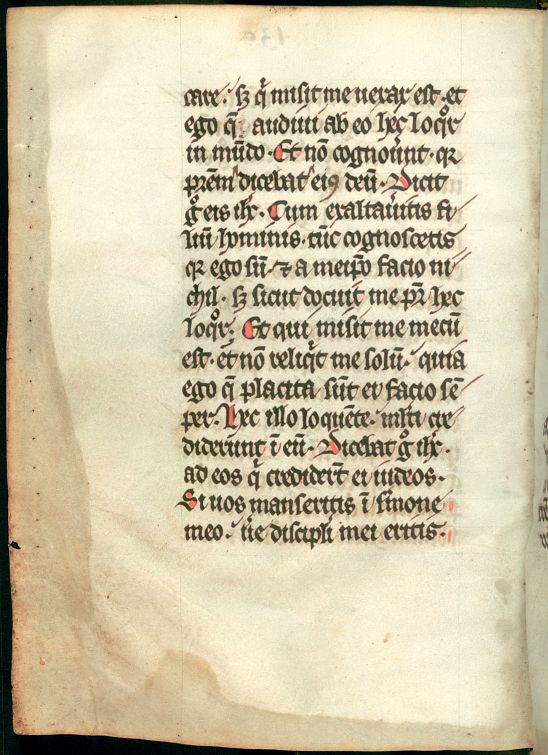 care. sꝫ q̇ misit me uerax est. et
ego q̄ audiui ab eo hec loqͦr
in mūdo. Et nō cognouȇnt. qꝛ
prēm dicebat eiꝰ deū. Dicit
gͦ eis ihc̄. Cum exaltaůitis fi
liū hominis. tūc cognoscetis
qꝛ ego sū. ⁊ a meip̄o facio ni
chil. sꝫ sicut docuit me pr̄ hec
loqͦr. Et qui misit me mecū
est. et nō reliqͥt me solū. quia
ego q̄ placita sūt ei facio sē
per. Hec illo loquēte. mlti cre
diderunt ī eū. Dicebat gͦ ihc̄.
ad eos q̇ credider̄t ei iudeos.
Si uos manseritis ī sꝰmone
meo. ůe discipl̄i mei eritis.